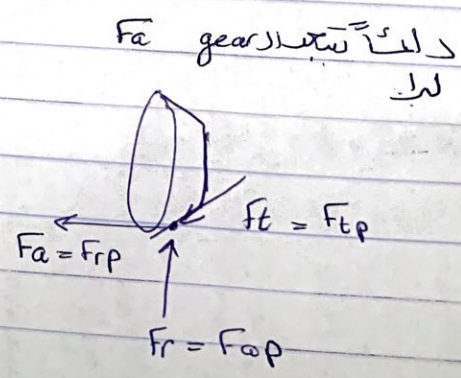 دائماً تبعد ال gear Fa
لبرا
Ft = Ftp
Fa = Frp
Fr = Fap